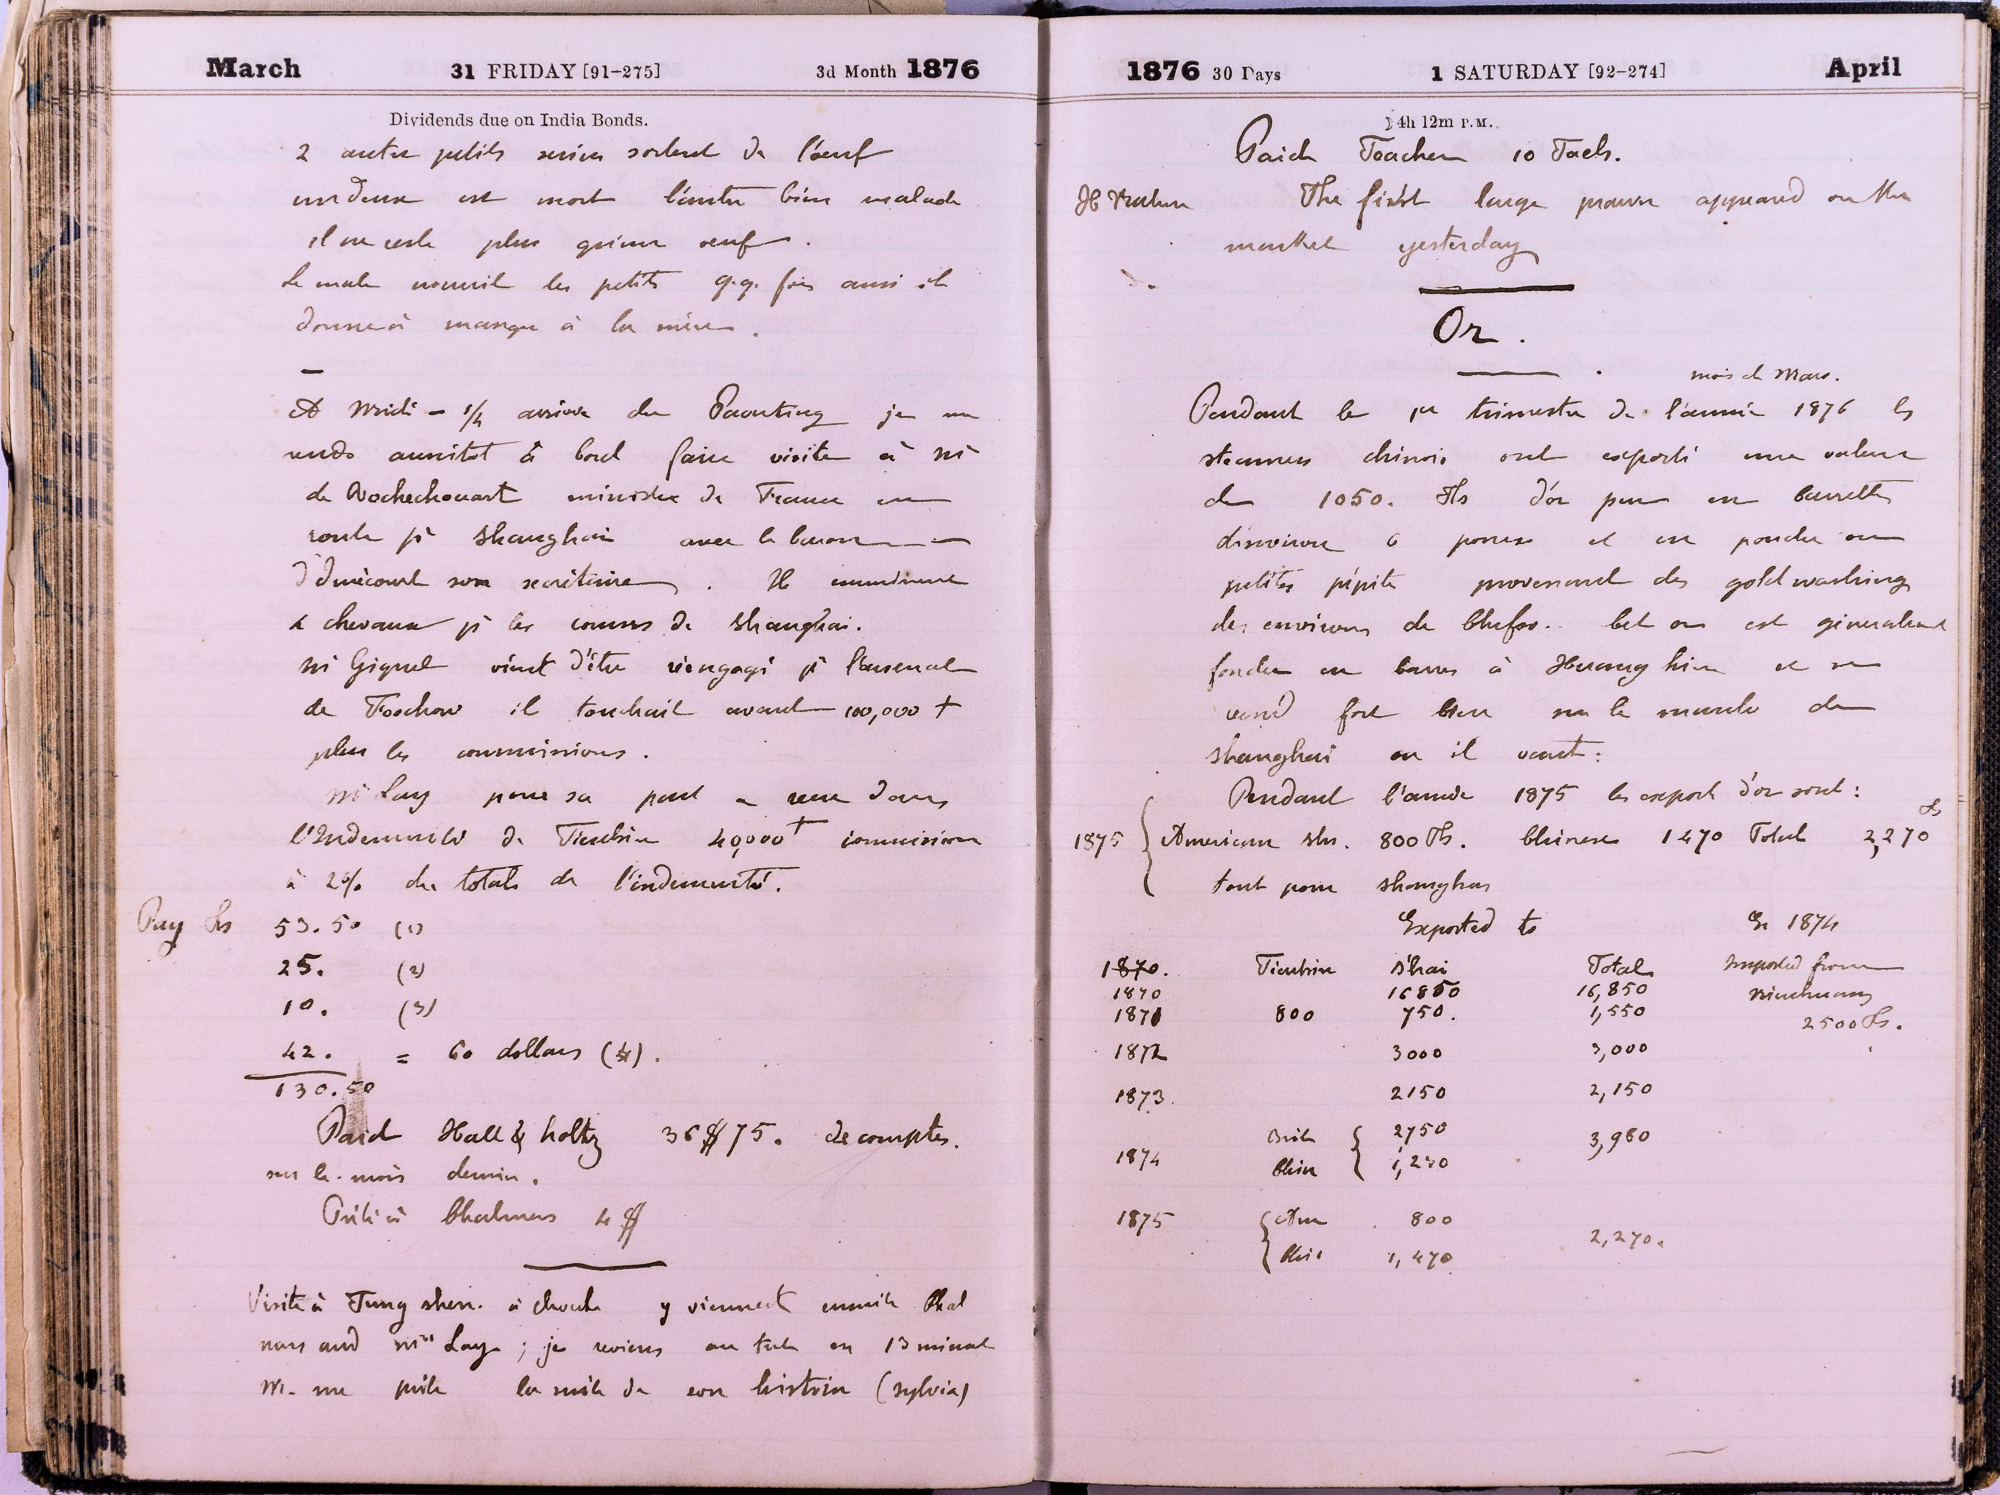 March 31 FRIDAY [91-275] 3d Month 1876
Dividends due on India Bonds.
2 autre petits serins sortent de l'œuf
un deux est mort l'autre bien malade
il ne reste plus qu'un œuf.
Le male nourrit les petits q.q. fois aussi il
donne à manger à la mère.
A Midi - 1/4 arrive du Paouting je me
rends aussitot à bord faire visite à Mr
de Rochechouart ministre de France en
route pr Shanghai avec le baron
son secrétaire. Il
2 chevaux pr les courses de Shanghai.
Mr Giquel vient d'être réengagé pr l'arsenal
de Foochow il touchait avant 100,000 t
plus les commissions.
Mr Lay pour sa part a reçu dans
l'Indemnité de Tientsin 40,000 t commission
à 2% du total de l'indemnité.
Pay Tls 53.50 (1)
25. (2)
10. (3)
42. = 60 dollars (4).
130.50
Paid Hall & Holtz 36$75. de comptes.
sur le mois dernier.
Prêté à Chalmers 4$
Visite à Tung shen. à cheval y viennent ensuite Chal
mers and Mrs Lay; je reviens au trot en 13 minut
M. me prête la suite de son histoire (Sylvia)
1876 30 Days 1 SATURDAY [92-274] April
4h 12m P.M.
Paid Teacher 10 Taels.
The first large prawn appeared on the
market yesterday
Or.
mois de Mars.
Pendant le 1er trimestre de l'année 1876 les
steamers chinois ont exporté une valeur
de 1050. Tls d'or pur en barrettes
d'environ 6 pouces et en poudre ou
petites pépites provenant des gold washings
des environs de Chefoo. Cet or est généralement
fondu en barres à Hwang hien et se
vend fort bien sur le marché de
Shanghai ou il vaut:
Pendant l'année 1875 les export d'or sont:
1875 American str. 800 Tls. Chinese 1470 Total 2,270 Tls
tout pour Shanghai
Exported to En 1874
1870. Tientsin S'hai Total Imported from
1870 16850 16,850 Niuchuang
1871 800 750. 1,550 2500 Tls.
1872 3000 3,000
1873. 2150 2,150
1874 Brit 2750 3,980
Chin 1,230
1875 Am 800 2,270.
Chin 1,470